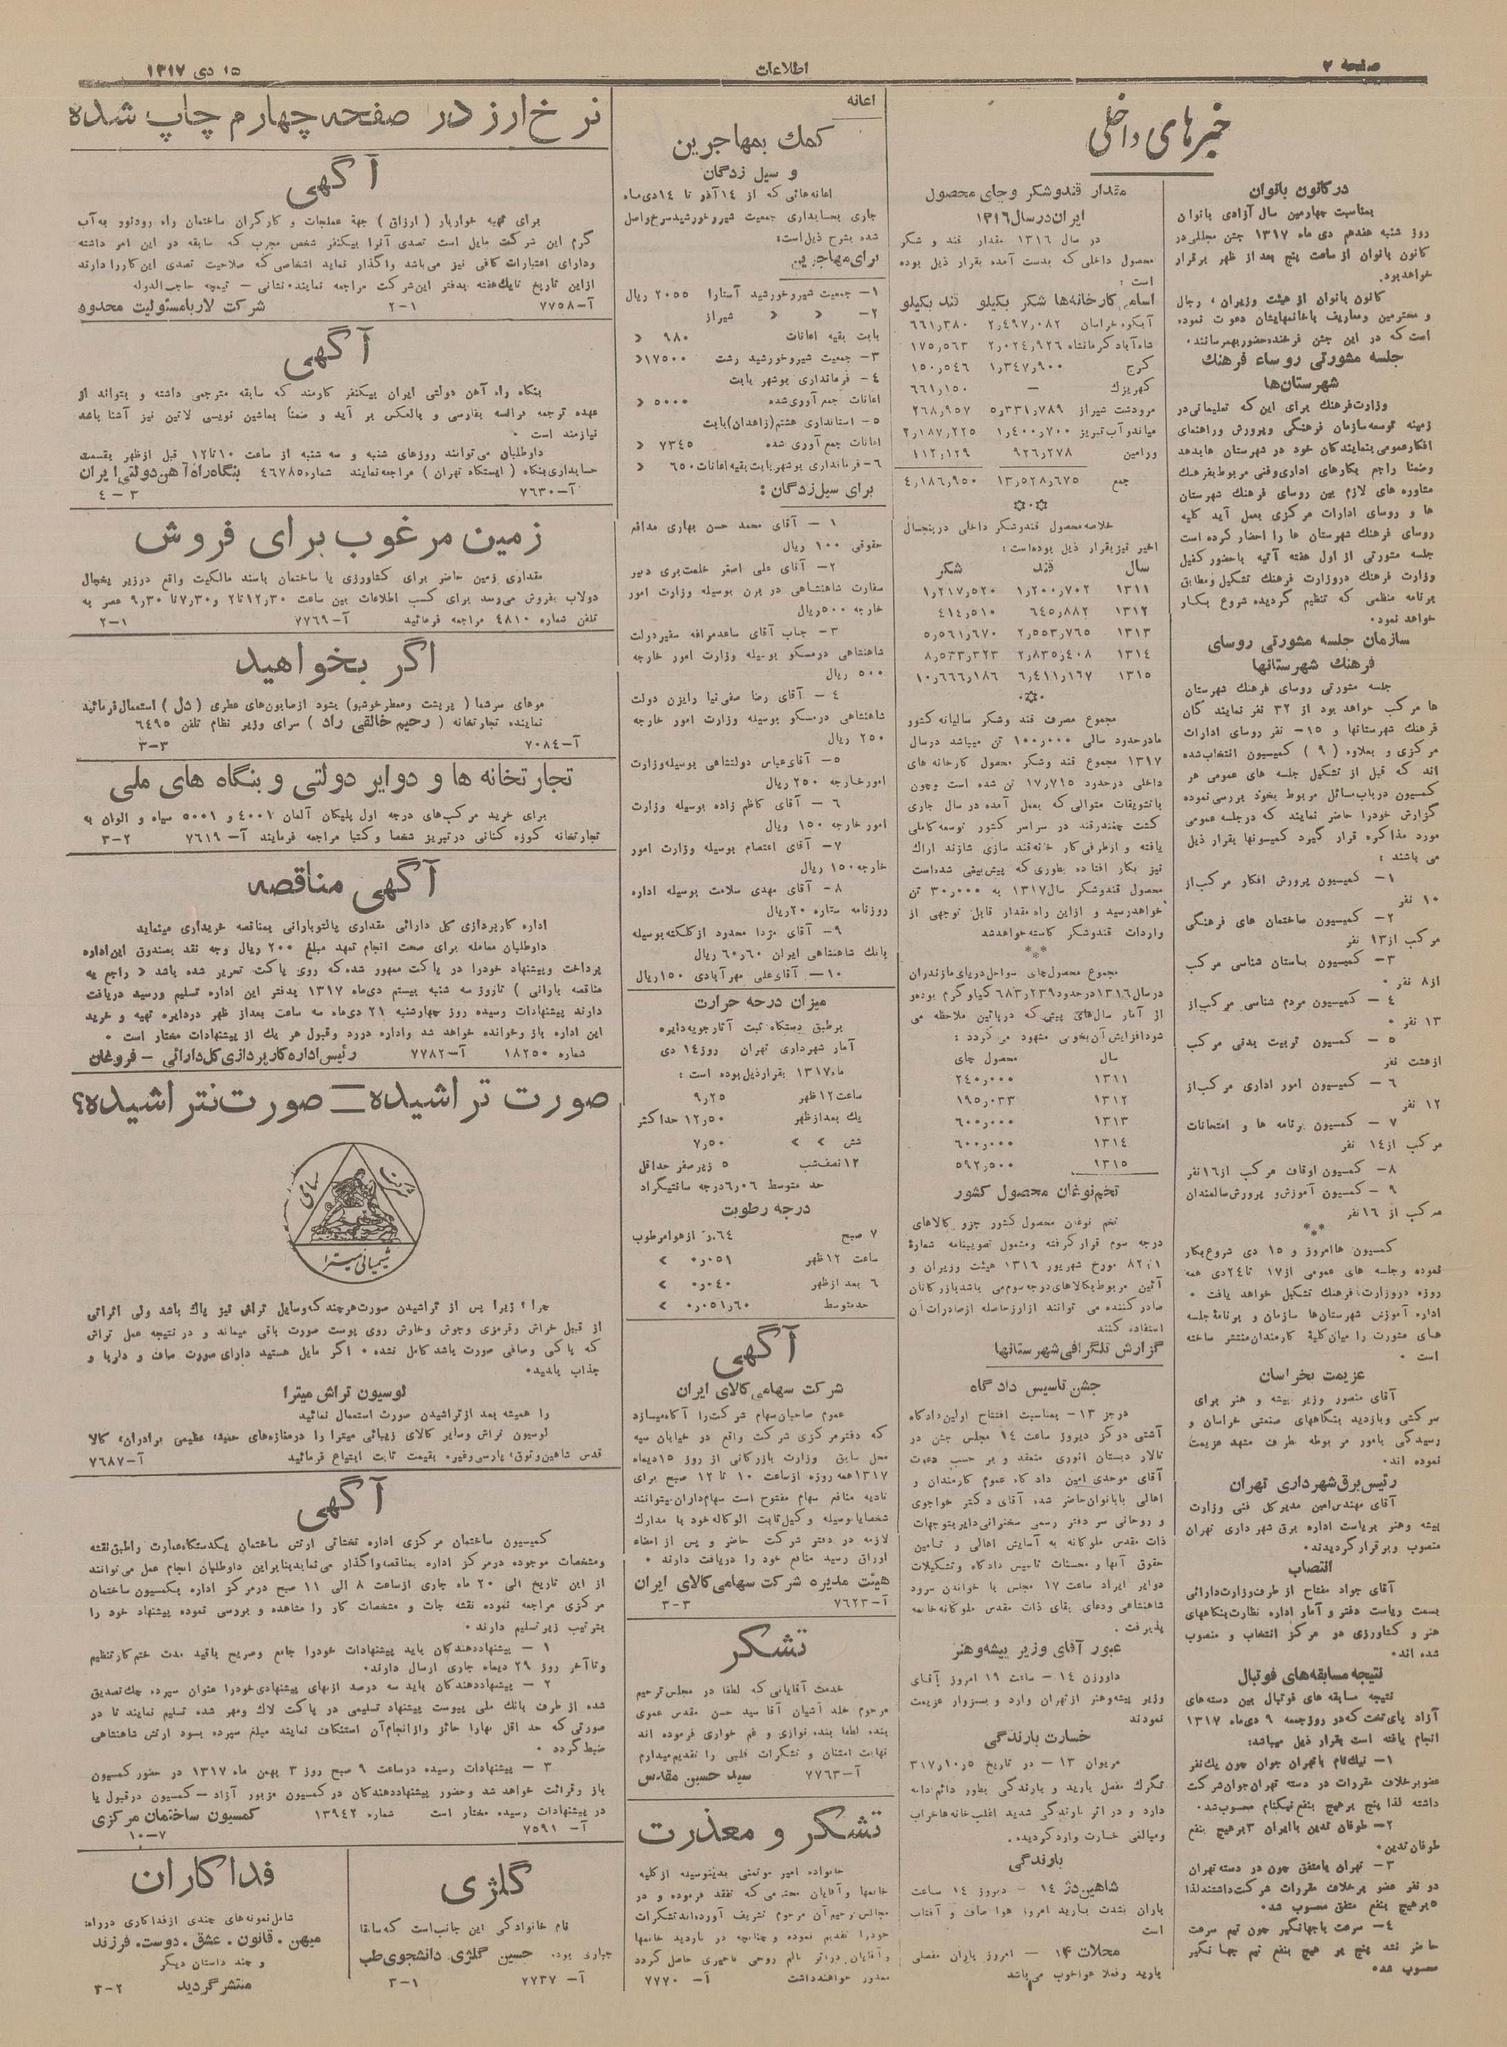 صفحه ۲
اطلاعات
۱۵ دی ۱۳۱۷
خبرهای داخلی
در کانون بانوان
بمناسبت چهارمین سال آزادی بانوان
روز شنبه هفدهم دی ماه ۱۳۱۷ جشن مجللی در
کانون بانوان از ساعت پنج بعد از ظهر برقرار
خواهد بود.
کانون بانوان از هیئت وزیران، رجال
و محترمین و معاریف باخانمهایشان دعوت نموده
است که در این جشن فرخنده حضور بهمرسانند.
جلسه مشورتی روساء فرهنك
شهرستان‌ها
وزارت فرهنك برای این که تعلیماتی در
زمینه توسعه سازمان فرهنگی و پرورش و راهنمای
افکار عمومی بنمایندگان خود در شهرستان ها بدهد
و ضمنا راجع بکارهای اداری و فنی مربوط بفرهنك
مشاوره های لازم بین روسای فرهنك شهرستان
ها و روسای ادارات مرکزی بعمل آید کلیه
روسای فرهنك شهرستان ها را احضار کرده است
جلسه مشورتی از اول هفته آتیه باحضور کفیل
وزارت فرهنك در وزارت فرهنك تشکیل و مطابق
برنامه منظمی که تنظیم گردیده شروع بکار
خواهد نمود.
سازمان جلسه مشورتی روسای
فرهنك شهرستانها
جلسه مشورتی روسای فرهنك شهرستان
ها مرکب خواهد بود از ۳۲ نفر نمایند گان
فرهنك شهرستانها و ۱۵- نفر روسای ادارات
مرکزی و بعلاوه (۹) کمیسیون انتخاب شده
اند که قبل از تشکیل جلسه های عمومی هر
کمیسیون در باب مسائل مربوط بخود بررسی نموده
گزارش خود را حاضر نمایند که در جلسه عمومی
مورد مذاکره قرار گیرد کمیسیونها بقرار ذیل
می باشند :
۱- کمیسیون پرورش افکار مرکب از
۱۰ نفر
۲- کمیسیون ساختمان های فرهنگی
مرکب از ۱۳ نفر
۳- کمیسیون باستان شناسی مرکب
از ۸ نفر.
۴- کمیسیون مردم شناسی مرکب از
۱۳ نفر.
۵ - کمیسیون تربیت بدنی مرکب
از هشت نفر
۶ - کمیسیون امور اداری مرکب از
۱۲ نفر
۷ - کمیسیون برنامه ها و امتحانات
مرکب از ۱۴ نفر
۸- کمیسیون اوقاف مرکب از ۱۶ نفر
۹ - کمیسیون آموزش و پرورش سالمندان
مرکب از ۱۶ نفر
کمیسیون ها امروز و ۱۵ دی شروع بکار
نموده و جلسه های عمومی از ۱۷ تا ۲۴ دی همه
روزه در وزارت فرهنك تشکیل خواهد یافت.
اداره آموزش شهرستان‌ها سازمان و برنامهٔ جلسه
های مشورت را میان کلیهٔ کارمندان منتشر ساخته
است.
عزیمت بخراسان
آقای منصور وزیر پیشه و هنر برای
سرکشی و بازدید بنگاههای صنعتی خراسان و
رسیدگی بامور مربوطه طرف مشهد عزیمت
نموده اند.
رئیس برق شهرداری تهران
آقای مهندس امین مدیر کل فنی وزارت
پیشه و هنر بریاست اداره برق شهرداری تهران
منصوب و برقرار گردیدند.
انتصاب
آقای جواد مفتاح از طرف وزارت دارائی
بسمت ریاست دفتر و آمار اداره نظارت بنگاههای
هنر و کشاورزی در مرکز انتخاب و منصوب
شده اند.
نتیجه مسابقه‌های فوتبال
نتیجه مسابقه های فوتبال بین دسته‌های
آزاد پای‌تخت که در روز جمعه ۹ دی ماه ۱۳۱۷
انجام یافته است بقرار ذیل میباشد:
۱- نیکنام باتهران جوان چون یك نفر
عضو برخلاف مقررات در دسته تهران جوان شرکت
داشته لذا پنج بر هیچ بنفع نیکنام محسوب شد.
۲- طوفان تدین باایران ۳ بر هیچ بنفع
طوفان تدین.
۳- تهران بامتفق چون در دسته تهران
دو نفر عضو برخلاف مقررات شرکت داشتند لذا
۵ برهیچ بنفع متفق محسوب شد.
۴- سرعت باجهانگیر چون تیم سرعت
حاضر نشد پنج بر هیچ بنفع تیم جهانگیر
محسوب شد.
مقدار قند و شکر و چای محصول
ایران در سال ۱۳۱۶
در سال ۱۳۱۶ مقدار قند و شکر
محصول داخلی که بدست آمده بقرار ذیل بوده
است :
اسامی کارخانه‌ها شکر بکیلو قند بکیلو
آبکوه خراسان ۲٫۴۹۷٫۰۸۲ ۶۶۱٫۳۸۰
شاه‌آباد کرمانشاه ۲٫۰۲۴٫۹۲۶ ۱۷۵٫۵۶۳
کرج ۱٫۳۴۷٫۹۰۰ ۱۵۰٫۵۴۶
کهریزك — ۶۶۱٫۱۵۰
مرودشت شیراز ۵٫۳۳۱٫۷۸۹ ۲۶۸٫۹۵۷
میاندوآب تبریز ۱٫۴۰۰٫۷۰۰ ۲٫۱۸۷٫۲۲۵
ورامین ۹۲۶٫۲۷۸ ۱۱۲٫۱۲۹
جمع ۱۳٫۵۲۸٫۶۷۵ ۴٫۱۸۶٫۹۵۰
خلاصه محصول قند و شکر داخلی در پنجسال
اخیر نیز بقرار ذیل بوده است :
سال قند شکر
۱۳۱۱ ۱٫۲۰۰٫۷۰۲ ۱٫۲۱۷٫۵۲۰
۱۳۱۲ ۶۴۵٫۸۸۲ ۴۱۴٫۵۱۰
۱۳۱۳ ۲٫۵۵۳٫۷۶۵ ۵٫۵۶۱٫۶۷۰
۱۳۱۴ ۲٫۸۳۵٫۴۰۸ ۸٫۵۳۳٫۳۲۳
۱۳۱۵ ۶٫۴۱۱٫۱۶۷ ۱۰٫۶۶۶٫۱۸۶
مجموع مصرف قند و شکر سالیانه کشور
ما در حدود سالی ۱۰۰٫۰۰۰ تن میباشد در سال
۱۳۱۷ مجموع قند و شکر محصول کارخانه های
داخلی در حدود ۱۷٫۷۱۵ تن شده است و چون
باتشویقات متوالی که بعمل آمده در سال جاری
کشت چغندر قند در سراسر کشور توسعه کاملی
یافته و از طرفی کار خانه قند سازی شازند اراك
نیز بکار افتاده بطوری که پیش بینی شده است
محصول قند و شکر سال ۱۳۱۷ به ۳۰٫۰۰۰ تن
خواهد رسید و از این راه مقدار قابل توجهی از
واردات قند و شکر کاسته خواهد شد
مجموع محصول چای سواحل دریای مازندران
در سال ۱۳۱۶ در حدود ۶۸۳٫۲۳۹ کیلو گرم بوده و
از آمار سال‌های پیش که در پائین ملاحظه می
شود افزایش آن بخوبی مشهود می گردد :
سال محصول چای
۱۳۱۱ ۲۴۰٫۰۰۰
۱۳۱۲ ۱۹۵٫۰۳۳
۱۳۱۳ ۶۰۰٫۰۰۰
۱۳۱۴ ۶۰۰٫۰۰۰
۱۳۱۵ ۵۹۲٫۵۰۰
تخم نوغان محصول کشور
تخم نوغان محصول کشور جزو کالاهای
درجه سوم قرار گرفته و مشمول تصویبنامه شمارهٔ
مورخ شهریور ۱۳۱۶ هیئت وزیران و
آئین مربوط بکالاهای درجه سوم می باشد بازرگانان
صادر کننده می توانند از ارز حاصله از صادرات آن
استفاده کنند
گزارش تلگرافی شهرستانها
جشن تاسیس دادگاه
درجز ۱۳- بمناسبت افتتاح اولین دادگاه
آشتی درگز دیروز ساعت ۱۴ مجلس جشن در
تالار دبستان انوری منعقد و بر حسب دعوت
آقای موحدی امین دادگاه عموم کارمندان و
اهالی بابانوان حاضر شده آقای دکتر خواجوی
و روحانی سر دفتر رسمی سخنرانی دایر بتوجهات
ذات مقدس ملوکانه به آسایش اهالی و تامین
حقوق آنها و محسنات تاسیس دادگاه و تشکیلات
دوایر ایراد ساعت ۱۷ مجلس با خواندن سرود
شاهنشاهی و دعای بقای ذات مقدس ملوکانه خاتمه
پذیرفت.
عبور آقای وزیر پیشه و هنر
داورزن ۱۴ - ساعت ۱۹ امروز آقای
وزیر پیشه و هنر از تهران وارد و بسبزوار عزیمت
نمودند
خسارت بارندگی
مریوان ۱۳ - در تاریخ ۳۱۷٫۱۰٫۵
تگرك مفصل بارید و بارندگی بطور دائم ادامه
دارد و در اثر بارندگی شدید اغلب خانه ها خراب
و مبالغی خسارت وارد گردیده.
بارندگی
شاهین دژ ۱۴ - دیروز ۱۴ ساعت
باران بشدت بارید امروز هوا صاف و آفتاب
است
محلات ۱۴ - امروز باران مفصلی
بارید و فعلا هوا خوب می باشد
اعانه
کمك بمهاجرین
و سیل زدگان
اعانه‌هائی که از ۱۴ آذر تا ۱۴ دی ماه
جاری بحسابداری جمعیت شیر و خورشید سرخ واصل
شده بشرح ذیل است:
برای مهاجرین
۱- جمعیت شیر و خورشید آستارا ۲۰۵۵ ریال
۲- « « شیراز
بابت بقیه اعانات ۹۸۰ «
۳- جمعیت شیر و خورشید رشت ۱۷۵۰۰ «
۴- فرمانداری بوشهر بابت
اعانات جمع آوری شده ۵۰۰۰ «
۵- استانداری هشتم (زاهدان) بابت
اعانات جمع آوری شده ۷۳۴۵ «
۶- فرمانداری بوشهر بابت بقیه اعانات ۶۵۰ «
برای سیل‌زدگان :
۱ - آقای محمد حسن بهاری مدافع
حقوقی ۱۰۰ ریال
۲- آقای علی اصغر خلعت بری دبیر
سفارت شاهنشاهی در برن بوسیله وزارت امور
خارجه ۵۰۰ ریال
۳- جناب آقای ساعد مراغه سفیر دولت
شاهنشاهی در مسکو بوسیله وزارت امور خارجه
۵۰۰ ریال
۴ - آقای رضا صفی نیا رایزن دولت
شاهنشاهی در مسکو بوسیله وزارت امور خارجه
۲۵۰ ریال
۵- آقای عباس دولتشاهی بوسیله وزارت
امور خارجه ۲۵۰ ریال
۶ - آقای کاظم زاده بوسیله وزارت
امور خارجه ۱۵۰ ریال
۷- آقای اعتصام بوسیله وزارت امور
خارجه ۱۵۰ ریال
۸- آقای مهدی سلامت بوسیله اداره
روزنامه ستاره ۲۰ ریال
۹- آقای مژدا محدود از کلکته بوسیله
بانك شاهنشاهی ایران ۶۰٫۶۰ ریال
۱۰- آقای علی مهرآبادی ۱۵۰ ریال
میزان درجه حرارت
برطبق دستگاه ثبت آثار جویه دایره
آمار شهرداری تهران روز ۱۴ دی
ماه ۱۳۱۷ بقرار ذیل بوده است :
ساعت ۱۲ ظهر ۹٫۲۵
یك بعد از ظهر ۱۲٫۵۰ حداکثر
شش » » ۷٫۵۰
۱۲ نصف شب ۵ زیر صفر حداقل
حد متوسط ۶٫۰۶ درجه سانتیگراد
درجه رطوبت
۷ صبح ۰٫۶۴ از هوا مرطوب
ساعت ۱۲ ظهر ۰٫۰۵۱ »
۶ بعد از ظهر ۰٫۰۴۰ »
حد متوسط ۰٫۰۵۱٫۶۰ »
آگهی
شرکت سهامی کالای ایران
عموم صاحبان سهام شرکت را آگاه میسازد
که دفتر مرکزی شرکت واقع در خیابان سپه
محل سابق وزارت بازرگانی از روز ۱۵ دیماه
۱۳۱۷ همه روزه از ساعت ۱۰ تا ۱۲ صبح برای
تادیه منافع سهام مفتوح است سهام داران میتوانند
شخصا یا بوسیله وکیل ثابت الوکاله خود با مدارك
لازمه در دفتر شرکت حاضر و پس از امضاء
اوراق رسید منافع خود را دریافت دارند.
هیئت مدیره شرکت سهامی کالای ایران
آ- ۷۶۲۳ ۳-۳
تشکر
خدمت آقایانی که لطفا در مجلس ترحیم
مرحوم خلد آشیان آقا سید حسن مقدس عموی
بنده لطفا بنده نوازی و غم خواری فرموده اند
نهایت امتنان و تشکرات قلبی را تقدیم میدارم
آ- ۷۷۶۳ سید حسین مقدس
تشکر و معذرت
خانواده امیر مؤتمنی بدینوسیله از کلیه
خانمها و آقایان محترمی که تفقد فرموده و در
مجالس ترحیم آن مرحوم تشریف آورده‌اند تشکرات
خود را تقدیم نموده و چنانچه در بازدید خانمها
و آقایان در اثر تالم روحی تاخیری حاصل گردد
معذور خواهند داشت آ- ۷۷۷۰
نرخ ارز در صفحه چهارم چاپ شده
آگهی
برای تهیه خواربار (ارزاق) جهة عملجات و کارگران ساختمان راه رودنو به آب
گرم این شرکت مایل است تصدی آنرا بیکنفر شخص مجرب که سابقه در این امر داشته
و دارای اعتبارات کافی نیز می باشد واگذار نماید اشخاصی که صلاحیت تصدی این کار را دارند
از این تاریخ تا یك هفته بدفتر این شرکت مراجعه نمایند. نشانی - تیمچه حاجب الدوله
آ- ۷۷۵۸ ۲-۱ شرکت لار بامسئولیت محدود
آگهی
بنگاه راه آهن دولتی ایران بیکنفر کارمند که سابقه مترجمی داشته و بتواند از
عهده ترجمه فرانسه بفارسی و بالعکس بر آید و ضمناً بماشین نویسی لاتین نیز آشنا باشد
نیازمند است.
داوطلبان می‌توانند روزهای شنبه و سه شنبه از ساعت ۱۰ تا ۱۲ قبل از ظهر بقسمت
حسابداری بنگاه (ایستگاه تهران) مراجعه نمایند شماره ۴۶۷۸۵ بنگاه راه آهن دولتی ایران
آ- ۷۶۳۰ ۳-۴
زمین مرغوب برای فروش
مقداری زمین حاضر برای کشاورزی یا ساختمان باسند مالکیت واقع در زیر یخچال
دولاب بفروش می‌رسد برای کسب اطلاعات بین ساعت ۱۲٫۳۰ تا ۲ و ۷٫۳۰ تا ۹٫۳۰ عصر به
تلفن شماره ۴۸۱۰ مراجعه فرمائید آ- ۷۷۶۹ ۲-۱
اگر بخواهید
موهای سر شما (پر پشت و معطر خوشبو) بشود از صابون‌های عطری (دل) استعمال فرمائید
نماینده تجارتخانه (رحیم خالقی راد) سرای وزیر نظام تلفن ۶۴۹۵
آ- ۷۰۸۴ ۳-۳
تجارتخانه ها و دوایر دولتی و بنگاه های ملی
برای خرید مرکب‌های درجه اول پلیکان آلمان ۴۰۰۱ و ۵۰۰۱ سیاه و الوان به
تجارتخانه کوزه کنانی در تبریز شخصا و کتبا مراجعه فرمایند آ- ۷۶۱۹ ۳-۲
آگهی مناقصه
اداره کارپردازی کل دارائی مقداری پالتو بارانی بمناقصه خریداری مینماید
داوطلبان معامله برای صحت انجام تعهد مبلغ ۲۰۰ ریال وجه نقد بصندوق این اداره
پرداخت و پیشنهاد خود را در پاکت ممهور شده که روی پاکت تحریر شده باشد « راجع به
مناقصه بارانی ) تا روز سه شنبه بیستم دی ماه ۱۳۱۷ بدفتر این اداره تسلیم و رسید دریافت
دارند پیشنهادات رسیده روز چهارشنبه ۲۱ دی ماه سه ساعت بعد از ظهر در دایره تهیه و خرید
این اداره باز و خوانده خواهد شد و اداره در رد و قبول هر یك از پیشنهادات مختار است.
شماره ۱۸۲۵۰ آ- ۷۷۸۲ رئیس اداره کارپردازی کل دارائی - فروغان
صورت تراشیده - صورت نتراشیده؟
سهامی
شیمیائی میترا
چرا؟ زیرا پس از تراشیدن صورت هر چند که وسایل تراش تیز پاك باشد ولی اثراتی
از قبیل خراش و قرمزی و جوش و خارش روی پوست صورت باقی میماند و در نتیجه عمل تراش
که پاکی و صافی صورت باشد کامل نشده. اگر مایل هستید دارای صورت صاف و دلربا و
جذاب باشید.
لوسیون تراش میترا
را همیشه بعد از تراشیدن صورت استعمال نمائید
لوسیون تراش و سایر کالای زیبائی میترا را در مغازه‌های جنید، عظیمی برادران، کالا
قدس شاهین و ثوق، پارسی و غیره بقیمت ثابت ابتیاع فرمائید آ- ۷۶۸۷
آگهی
کمیسیون ساختمان مرکزی اداره تخشائی ارتش ساختمان یکدستگاه عمارت را طبق نقشه
و مشخصات موجوده در مرکز اداره بمناقصه واگذار می نماید بنابراین داوطلبان انجام عمل می توانند
از این تاریخ الی ۲۰ ماه جاری از ساعت ۸ الی ۱۱ صبح در مرکز اداره بکمیسیون ساختمان
مرکزی مراجعه نموده نقشه جات و مشخصات کار را مشاهده و بررسی نموده پیشنهاد خود را
بترتیب زیر تسلیم دارند.
۱ - پیشنهاد دهندگان باید پیشنهادات خود را جامع و صریح باقید مدت ختم کار تنظیم
و تا آخر روز ۲۹ دیماه جاری ارسال دارند.
۲ - پیشنهاد دهندگان باید سه درصد از بهای پیشنهادی خود را عنوان سپرده چك تصدیق
شده از طرف بانك ملی پیوست پیشنهاد تسلیمی در پاکت لاك و مهر شده تسلیم نمایند تا در
صورتی که حد اقل بها را حائز و از انجام آن استنکاف نمایند مبلغ سپرده بسود ارتش شاهنشاهی
ضبط گردد.
۳ - پیشنهادات رسیده در ساعت ۹ صبح روز ۳ بهمن ماه ۱۳۱۷ در حضور کمیسیون
باز و قرائت خواهد شد و حضور پیشنهاد دهندگان در کمیسیون مزبور آزاد - کمیسیون در قبول یا
رد پیشنهادات رسیده مختار است شماره ۱۳۹۴۲ کمسیون ساختمان مرکزی
آ- ۷۵۹۱ ۱۰-۷
گلژی
نام خانوادگی این جانب است که سابقا
جباری بوده. حسین گلژی دانشجوی طب
آ- ۷۷۳۷ ۳-۱
فداکاران
شامل نمونه‌های چندی از فداکاری در راه:
میهن. قانون. عشق. دوست. فرزند
و چند داستان دیگر
منتشر گردید ۳-۲